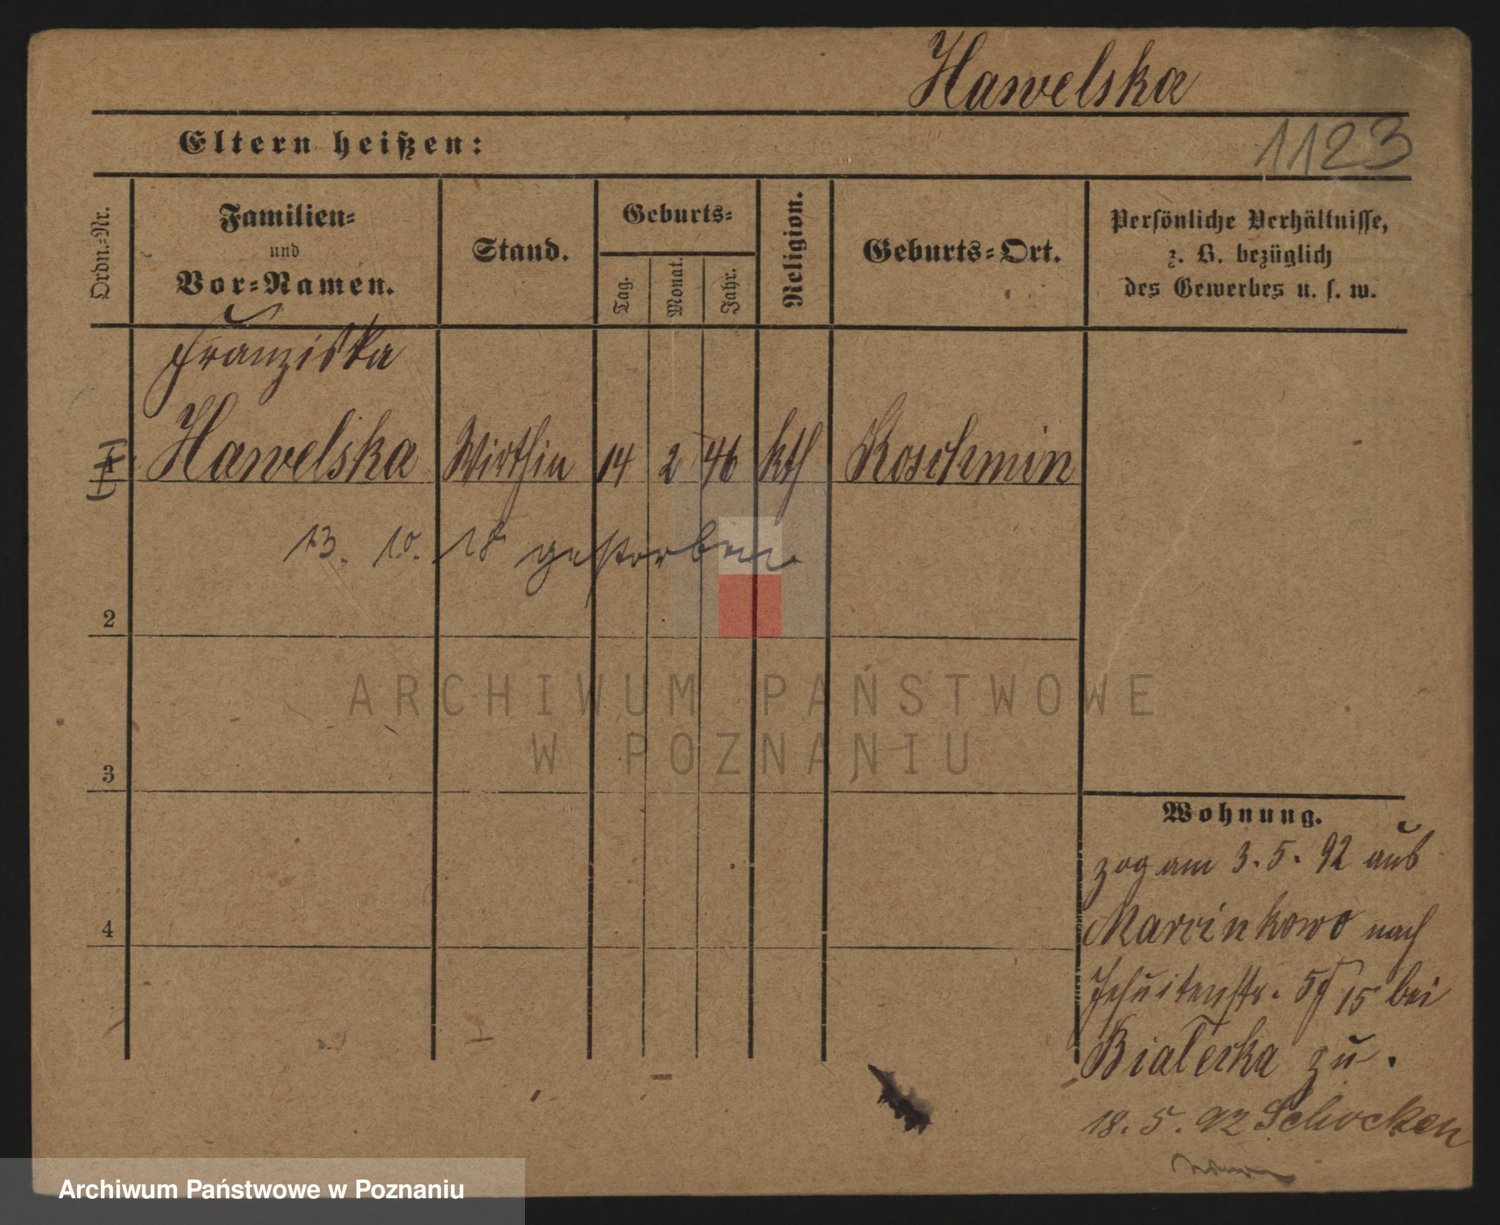 Hawelska
Eltern heißen:
1123
Ordn.-Nr.
Familien-
und
Vor-Namen.
Stand.
Geburts-
Tag.
Monat.
Jahr.
Religion.
Geburts-Ort.
Persönliche Verhältnisse,
z. B. bezüglich
des Gewerbes u. s. w.
Franziska
Hawelska Wirthin 14 2 46 kth Koschmin
13. 10. 18 gestorben.
2
3
4
ARCHIWUM PAŃSTWOWE
W POZNANIU
Wohnung.
zog am 3. 5. 92 aus
Marcinkowo nach
Jesuitenstr. 5 15 bei
Białecka zu.
18. 5. 92 Schocken
Archiwum Państwowe w Poznaniu